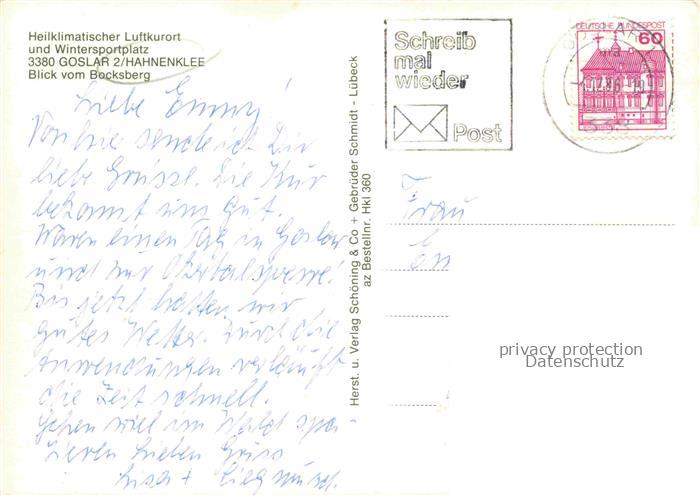 Heilklimatischer Luftkurort
und Wintersportplatz
3380 GOSLAR 2/HAHNENKLEE
Blick vom Bocksberg
Liebe Emmy!
Von hier sende ich Dir
liebe Grüsse. Die Kur
bekomt uns gut.
Waren einen Tag in Goslar
und zur Okertalsperre!
Bis jetzt hatten wir
gutes Wetter. Durch die
Anwendungen verläuft
die Zeit schnell.
Gehen viel im Wald spa-
zieren Lieben Gruss
Lisa +
Herst. u. Verlag Schöning & Co + Gebrüder Schmidt - Lübeck
az Bestellnr. Hkl 360
Schreib
mal
wieder
Post
DEUTSCHE BUNDESPOST
60
Frau
Em
privacy protection
Datenschutz